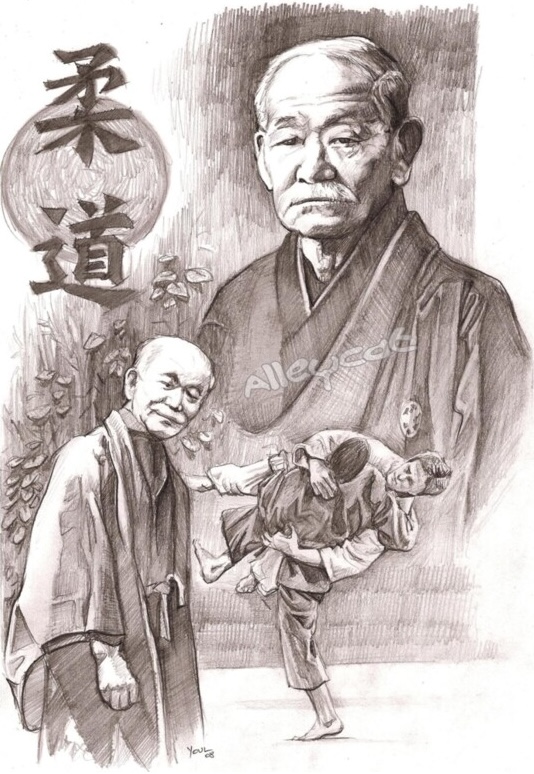 柔
道
Alleycat
YOUL
08